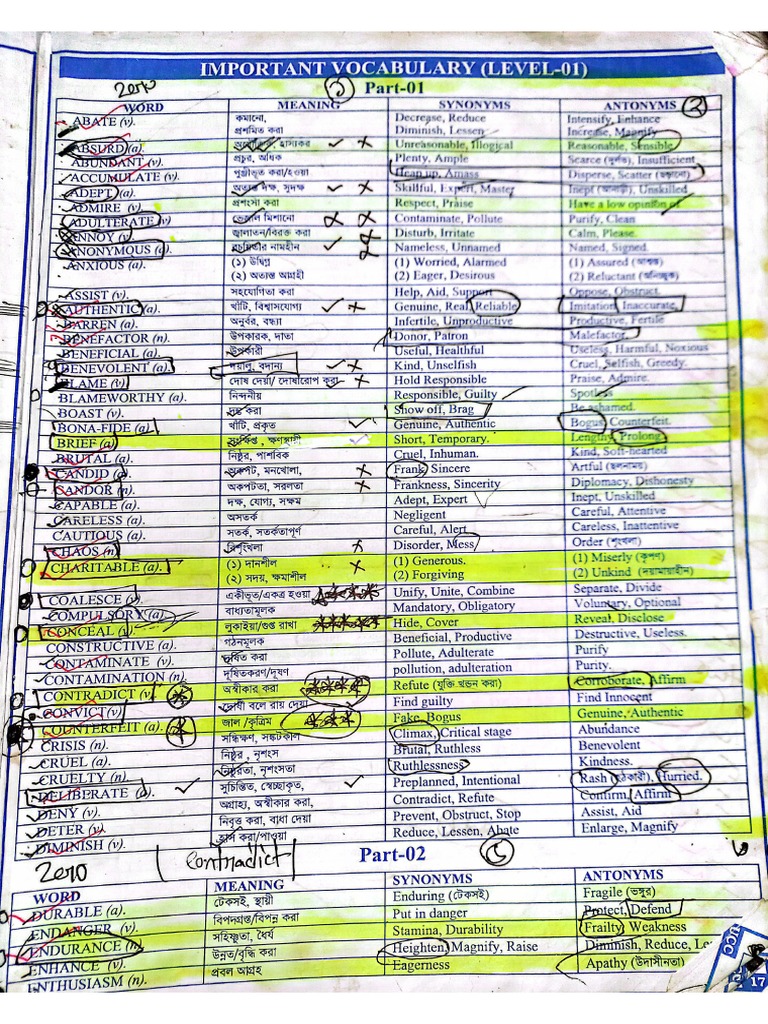 IMPORTANT VOCABULARY (LEVEL-01)
Zero Part-01
WORD MEANING SYNONYMS ANTONYMS
ABATE (v). কমানো, প্রশমিত করা Decrease, Reduce Diminish, Lessen Intensify, Enhance Increase, Magnify
ABSURD (a). হাস্যকর Unreasonable, Illogical Reasonable, Sensible
ABUNDANT (a). প্রচুর, অধিক Plenty, Ample Scarce (দুর্লভ), Insufficient
ACCUMULATE (v). পুঞ্জীভূত করা/হওয়া Heap up, Amass Disperse, Scatter (ছড়ানো)
ADEPT (a). অত্যন্ত দক্ষ, সুদক্ষ Skillful, Expert, Master Inept (আনাড়ী), Unskilled
ADMIRE (v). প্রশংসা করা Respect, Praise Have a low opinion of
ADULTERATE (v) ভেজাল মিশানো Contaminate, Pollute Purify, Clean
ANNOY (v). জ্বালাতন/বিরক্ত করা Disturb, Irritate Calm, Please.
ANONYMOUS (a). নামহীন Nameless, Unnamed Named, Signed.
ANXIOUS (a). (১) উদ্বিগ্ন (1) Worried, Alarmed (1) Assured (আশ্বস্ত)
(২) অত্যন্ত আগ্রহী (2) Eager, Desirous (2) Reluctant (অনিচ্ছুক)
ASSIST (v). সহযোগিতা করা Help, Aid, Support Oppose, Obstruct.
AUTHENTIC (a). খাঁটি, বিশ্বাসযোগ্য Genuine, Real, Reliable Imitation, Inaccurate,
BARREN (a). অনুর্বর, বন্ধ্যা Infertile, Unproductive Productive, Fertile
BENEFACTOR (n). উপকারক, দাতা Donor, Patron Malefactor,
BENEFICIAL (a). উপকারী Useful, Healthful Useless, Harmful, Noxious
BENEVOLENT (a). দয়ালু, বদান্য Kind, Unselfish Cruel, Selfish, Greedy.
BLAME (v) দোষ দেয়া/ দোষারোপ করা Hold Responsible Praise, Admire.
BLAMEWORTHY (a). নিন্দনীয় Responsible, Guilty Spotless
BOAST (v). দম্ভ করা Show off, Brag Be ashamed.
BONA-FIDE (a) খাঁটি, প্রকৃত Genuine, Authentic Bogus, Counterfeit.
BRIEF (a) সংক্ষিপ্ত, ক্ষণস্থায়ী Short, Temporary. Lengthy, Prolong
BRUTAL (a). নিষ্ঠুর, পাশবিক Cruel, Inhuman. Kind, Soft-hearted
CANDID (a). অকপট, মনখোলা, Frank, Sincere Artful (ছলনাময়)
CANDOR (n). অকপটতা, সরলতা Frankness, Sincerity Diplomacy, Dishonesty
CAPABLE (a). দক্ষ, যোগ্য, সক্ষম Adept, Expert Inept, Unskilled
CARELESS (a). অসতর্ক Negligent Careful, Attentive
CAUTIOUS (a). সতর্ক, সতর্কতাপূর্ণ Careful, Alert Careless, Inattentive
CHAOS (n). বিশৃংখলা Disorder, Mess Order (শৃংখলা)
CHARITABLE (a). (১) দানশীল (1) Generous. (1) Miserly (কৃপণ)
(২) সদয়, ক্ষমাশীল (2) Forgiving (2) Unkind (দয়ামায়াহীন)
COALESCE (v). একীভূত/একত্র হওয়া Unify, Unite, Combine Separate, Divide
COMPULSORY (a) বাধ্যতামূলক Mandatory, Obligatory Voluntary, Optional
CONCEAL (v). লুকাইয়া/গুপ্ত রাখা Hide, Cover Reveal, Disclose
CONSTRUCTIVE (a). গঠনমূলক Beneficial, Productive Destructive, Useless.
CONTAMINATE (v). দূষিত করা Pollute, Adulterate Purify
CONTAMINATION (n). দূষিতকরণ/দূষণ pollution, adulteration Purity.
CONTRADICT (v). অস্বীকার করা Refute (যুক্তি খন্ডন করা) Corroborate, Affirm
CONVICT (v). দোষী বলে রায় দেয়া Find guilty Find Innocent
COUNTERFEIT (a). জাল /কৃত্রিম Fake, Bogus Genuine, Authentic
CRISIS (n). সন্ধিক্ষণ, সঙ্কটকাল Climax, Critical stage Abundance
CRUEL (a). নিষ্ঠুর, নৃশংস Brutal, Ruthless Benevolent
CRUELTY (n). নিষ্ঠুরতা, নৃশংসতা Ruthlessness Kindness.
DELIBERATE (a). সুচিন্তিত, স্বেচ্ছাকৃত, Preplanned, Intentional Rash (হঠকারী), Hurried.
DENY (v). অগ্রাহ্য, অস্বীকার করা, Contradict, Refute Confirm, Affirm
DETER (v). নিবৃত্ত করা, বাধা দেয়া Prevent, Obstruct, Stop Assist, Aid
DIMINISH (v). হ্রাস করা/পাওয়া Reduce, Lessen, Abate Enlarge, Magnify
Zero contradict Part-02
WORD MEANING SYNONYMS ANTONYMS
DURABLE (a). টেকসই, স্থায়ী Enduring (টেকসই) Fragile (ভঙ্গুর)
ENDANGER (v). বিপদগ্রস্ত/বিপন্ন করা Put in danger Protect, Defend
ENDURANCE (n). সহিষ্ণুতা, ধৈর্য Stamina, Durability Frailty, Weakness
ENHANCE (v). উন্নত/বৃদ্ধি করা Heighten, Magnify, Raise Diminish, Reduce,
ENTHUSIASM (n). প্রবল আগ্রহ Eagerness Apathy (উদাসীনতা)
UCC
17